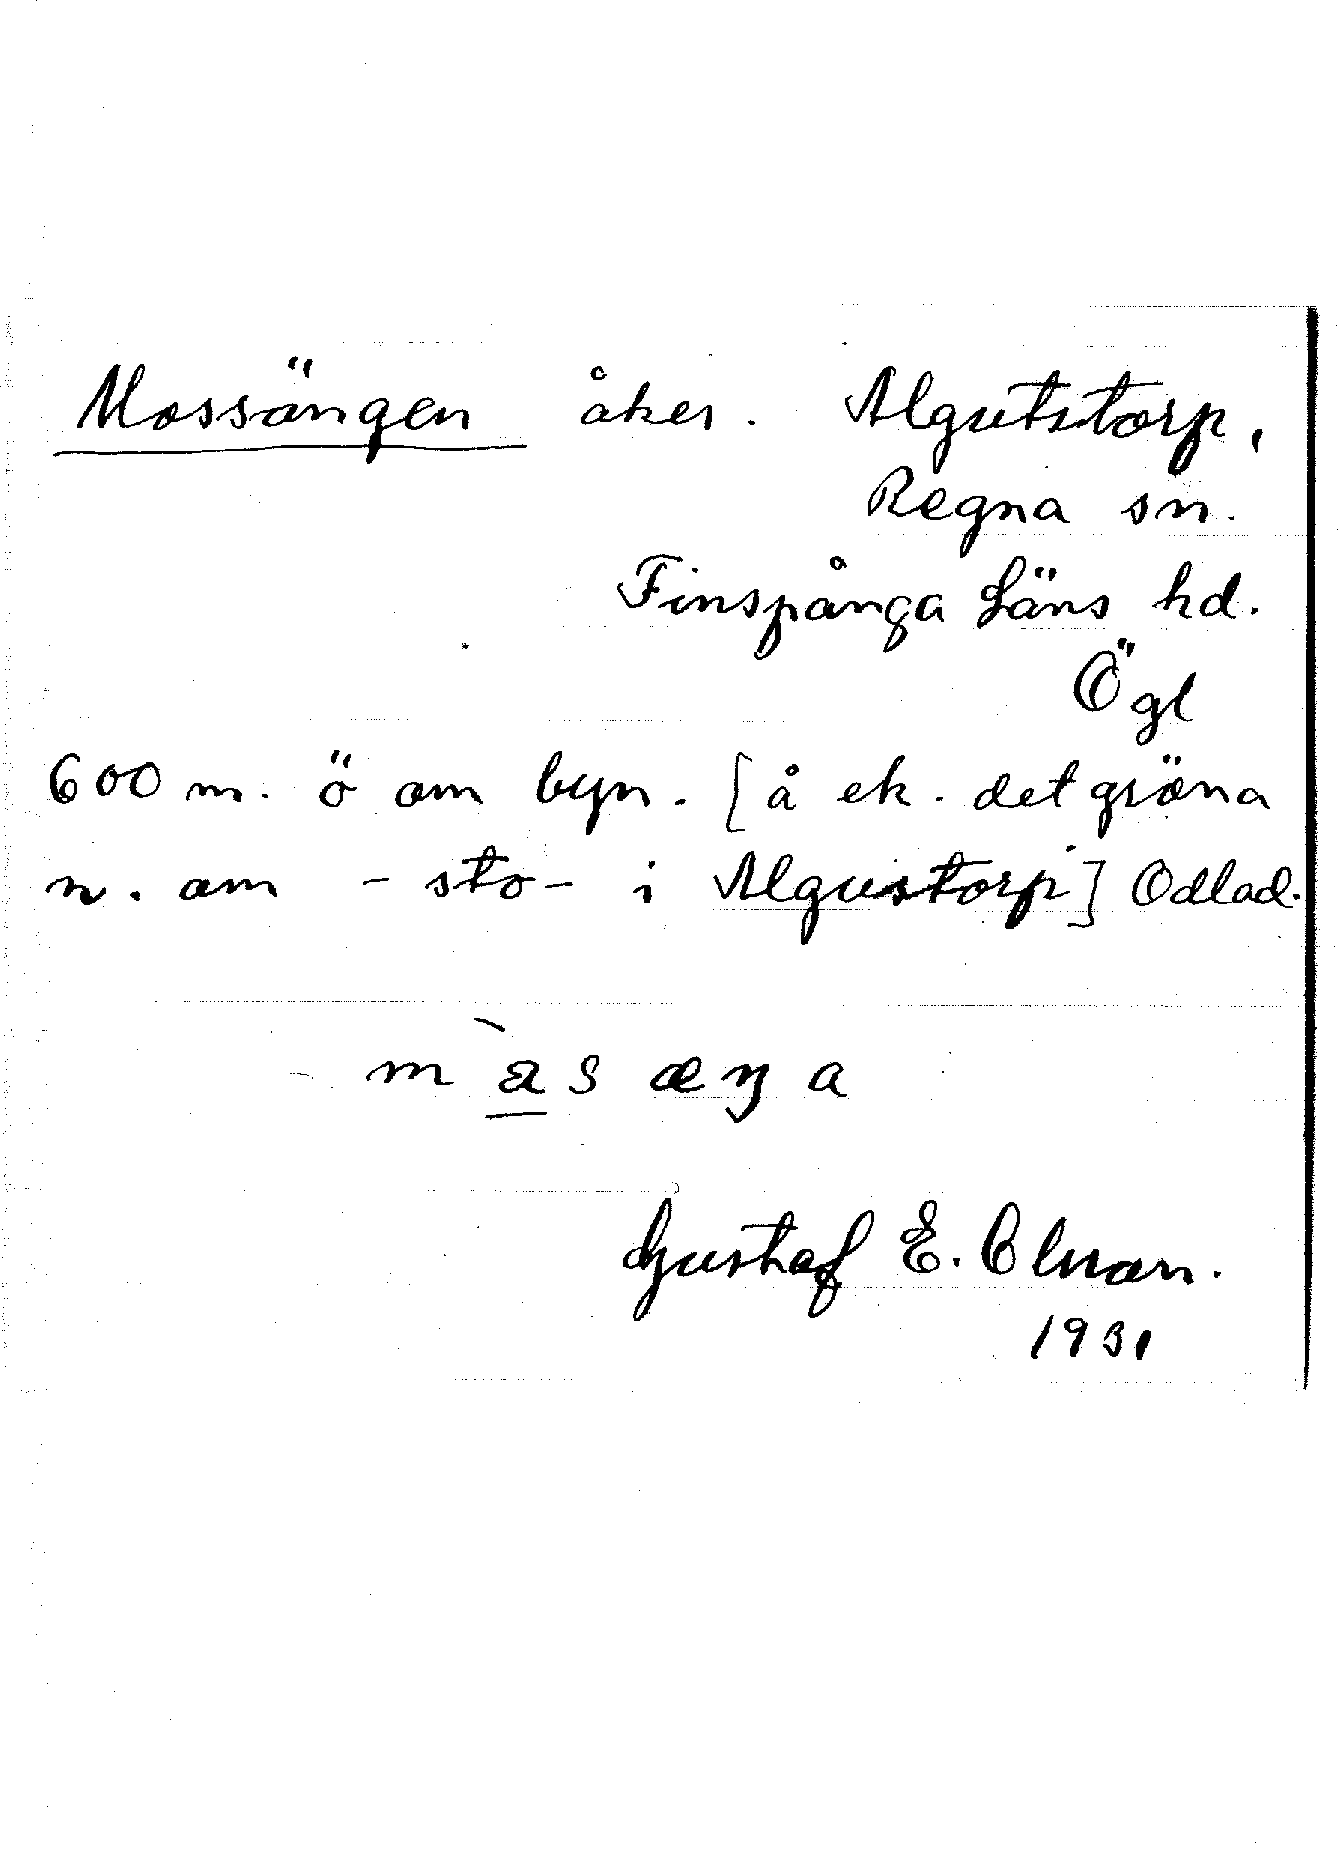 Mossängen åker. Algutstorp,
Regna sn.
Finspånga Läns hd.
Ögl
600 m. ö om byn. [å ek. det gröna
n. om - sto - i Algustorp] Odlad.
m a s æ ŋ a
Gustaf E. Olson.
1931